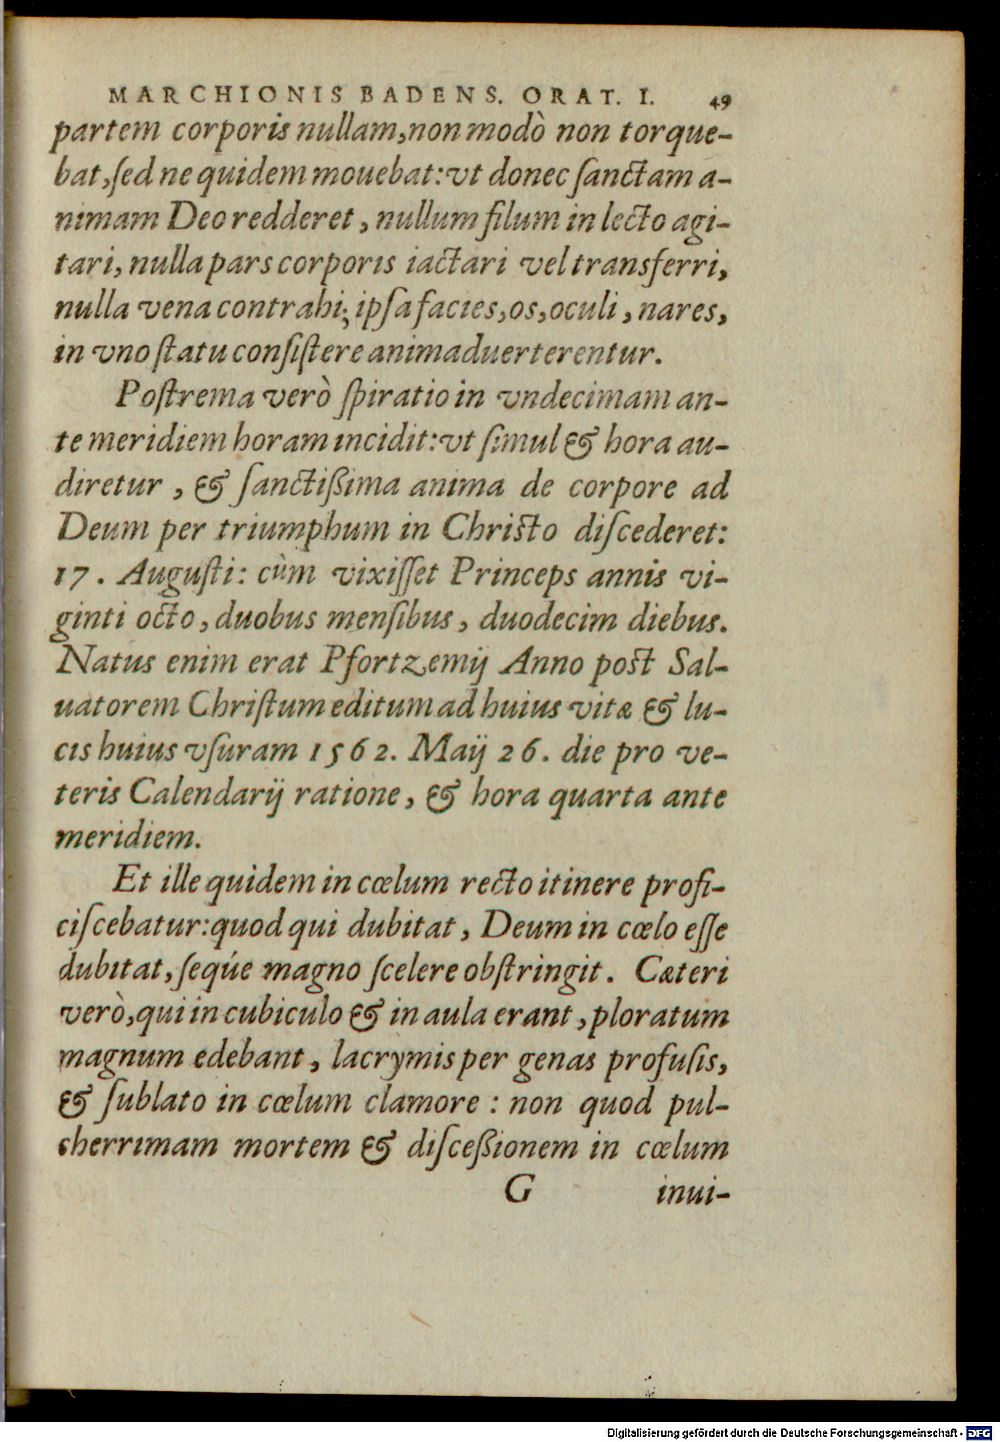 MARCHIONIS BADENS. ORAT. I. 49
partem corporis nullam, non modò non torque-
bat, ſed ne quidem mouebat: vt donec ſanctam a-
nimam Deo redderet, nullum filum in lecto agi-
tari, nulla pars corporis iactari vel transferri,
nulla vena contrahi; ipſa facies, os, oculi, nares,
in vno ſtatu conſiſtere animaduerterentur.
Poſtrema verò ſpiratio in vndecimam an-
te meridiem horam incidit: vt ſimul & hora au-
diretur, & ſanctißima anima de corpore ad
Deum per triumphum in Chriſto diſcederet:
17. Auguſti: cùm vixiſſet Princeps annis vi-
ginti octo, duobus menſibus, duodecim diebus.
Natus enim erat Pfortzemij Anno poſt Sal-
uatorem Chriſtum editum ad huius vitæ & lu-
cis huius vſuram 1562. Maij 26. die pro ve-
teris Calendarij ratione, & hora quarta ante
meridiem.
Et ille quidem in cœlum recto itinere profi-
ciſcebatur: quod qui dubitat, Deum in cœlo eſſe
dubitat, ſeq́ue magno ſcelere obſtringit. Cæteri
verò, qui in cubiculo & in aula erant, ploratum
magnum edebant, lacrymis per genas profuſis,
& ſublato in cœlum clamore: non quod pul-
cherrimam mortem & diſceßionem in cœlum
G inui-
Digitalisierung gefördert durch die Deutsche Forschungsgemeinschaft - DFG